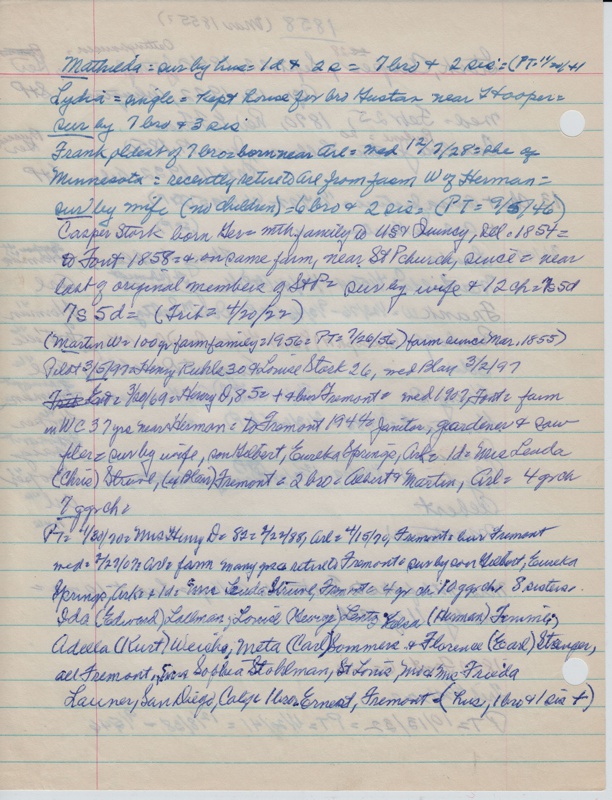 Mathilda = sur by hus = 1d & 2s = 7 bro & 2 sis = (PT= 11/20/41
Lydia = single = kept house for bro Gustav near Hooper =
sur by 7 bro & 3 sis
Frank oldest of 7 bro = born near Arl = med 12/7/28 = she of
Minnesota = recently retire to Arl from farm W of Herman =
sur by wife (no children) = 6 bro & 2 sis = (PT = 9/5/46)
Casper Stork born Ger = with family to US & Quincy, Ill = 1854 =
to Font 1858 = & on same farm, near St P church, since = near
last of original members of St P = sur by wife & 12 ch = 7s 5d
7s 5d = (Frib = 4/20/22)
(Martin W = 100 yr farm family = 1956 = PT = 7/26/56) farm since Mar, 1855)
Pilot 3/5/97 = Henry Kuhle 30 & Louise Stork 26, med Blair 3/2/97
3/20/69 = Henry D, 85 = + & bur Fremont = med 1907, Font = farm
in WC 37 yrs near Herman = to Fremont 1944 = janitor, gardener & saw
filer = sur by wife, son Gilbert, Eureka Springs, Ark = 1d = Mrs Leuda
(Chris) Struve, (ex Blair) Fremont = 2 bro = Albert & Martin, Arl = 4 grch
7 ggrch =
PT = 4/30/70 = Mrs Henry D = 82 = 2/22/88, Arl = 4/15/70, Fremont = bur Fremont
med = 2/27/07 = Arl = farm many yrs retire to Fremont = sur by son Gilbert, Eureka
Springs, Ark + 1d = Mrs Leuda Struve, Fremont = 4 gr ch 10 ggrch 8 sisters =
Ida (Edward) Lallman, Louise (George) Lentz (Herman)
Adella (Kurt) Weigh, Meta (Carl) Sommers & Florence (Earl) Stranger,
all Fremont, Sophia Stohlman, St Louis, Mrs Frieda
Launer, San Diego, Calif 1 bro Ernest, Fremont = (hus, 1 bro & 1 sis +)